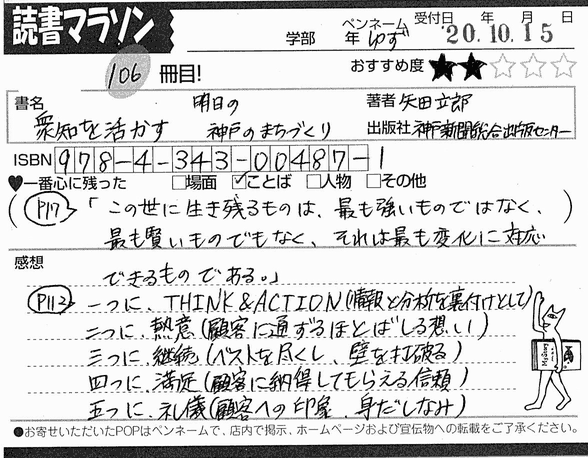 読書マラソン
受付日 年 月 日
学部 年 ペンネーム ゆず '20.10.15
106 冊目! おすすめ度 ★★☆☆☆
書名 明日の 著者 矢田立郎
衆知を活かす 神戸のまちづくり 出版社 神戸新聞総合出版センター
ISBN 978-4-343-00487-1
♥一番心に残った □場面 ☑ことば □人物 □その他
(P17)「この世に生き残るものは、最も強いものではなく、)
最も賢いものでもなく、それは最も変化に対応
感想
できるものである。」
P112 一つに、THINK&ACTION(情報と分析を裏付けとして)
二つに、熱意(顧客に通ずるほとばしる想い)
三つに、継続(ベストを尽くし、壁を打破る)
四つに、満足(顧客に納得してもらえる信頼)
五つに、礼儀(顧客への印象、身だしなみ)
●お寄せいただいたPOPはペンネームで、店内で掲示、ホームページおよび宣伝物への転載をご了承ください。